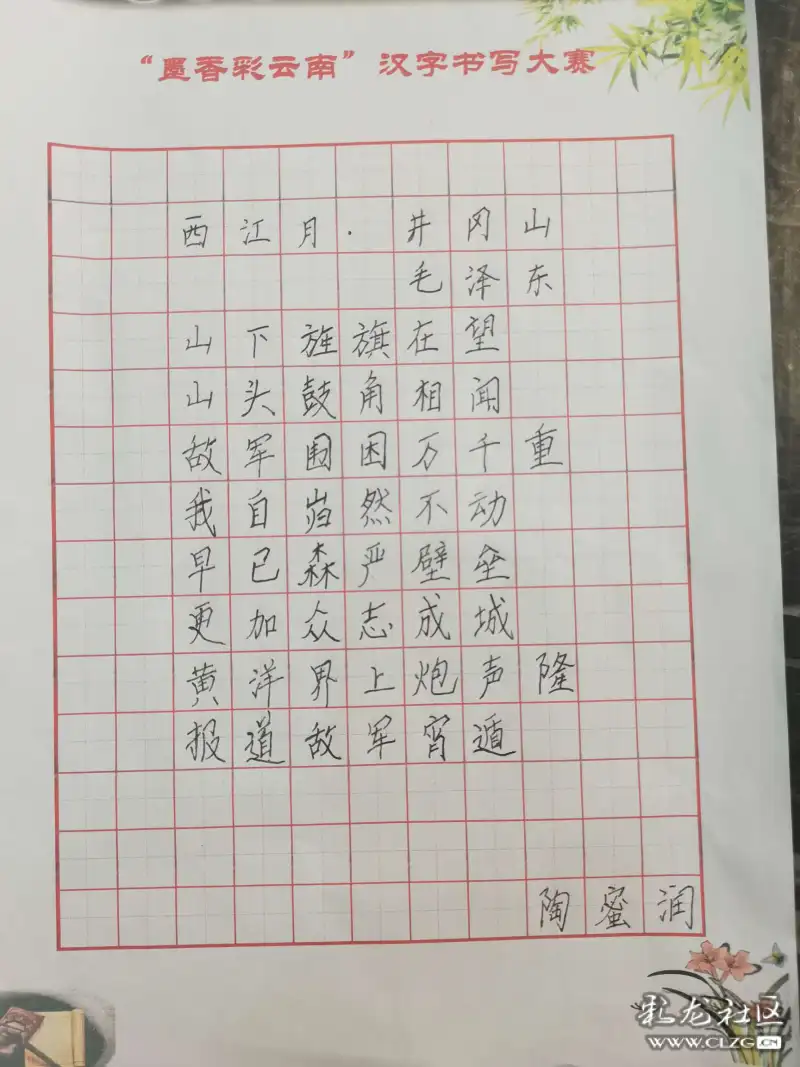 “墨香彩云南”汉字书写大赛
西江月·井冈山
毛泽东
山下旌旗在望
山头鼓角相闻
敌军围困万千重
我自岿然不动
早已森严壁垒
更加众志成城
黄洋界上炮声隆
报道敌军宵遁
陶蜜润
彩龙社区
WWW.CLZG.CN